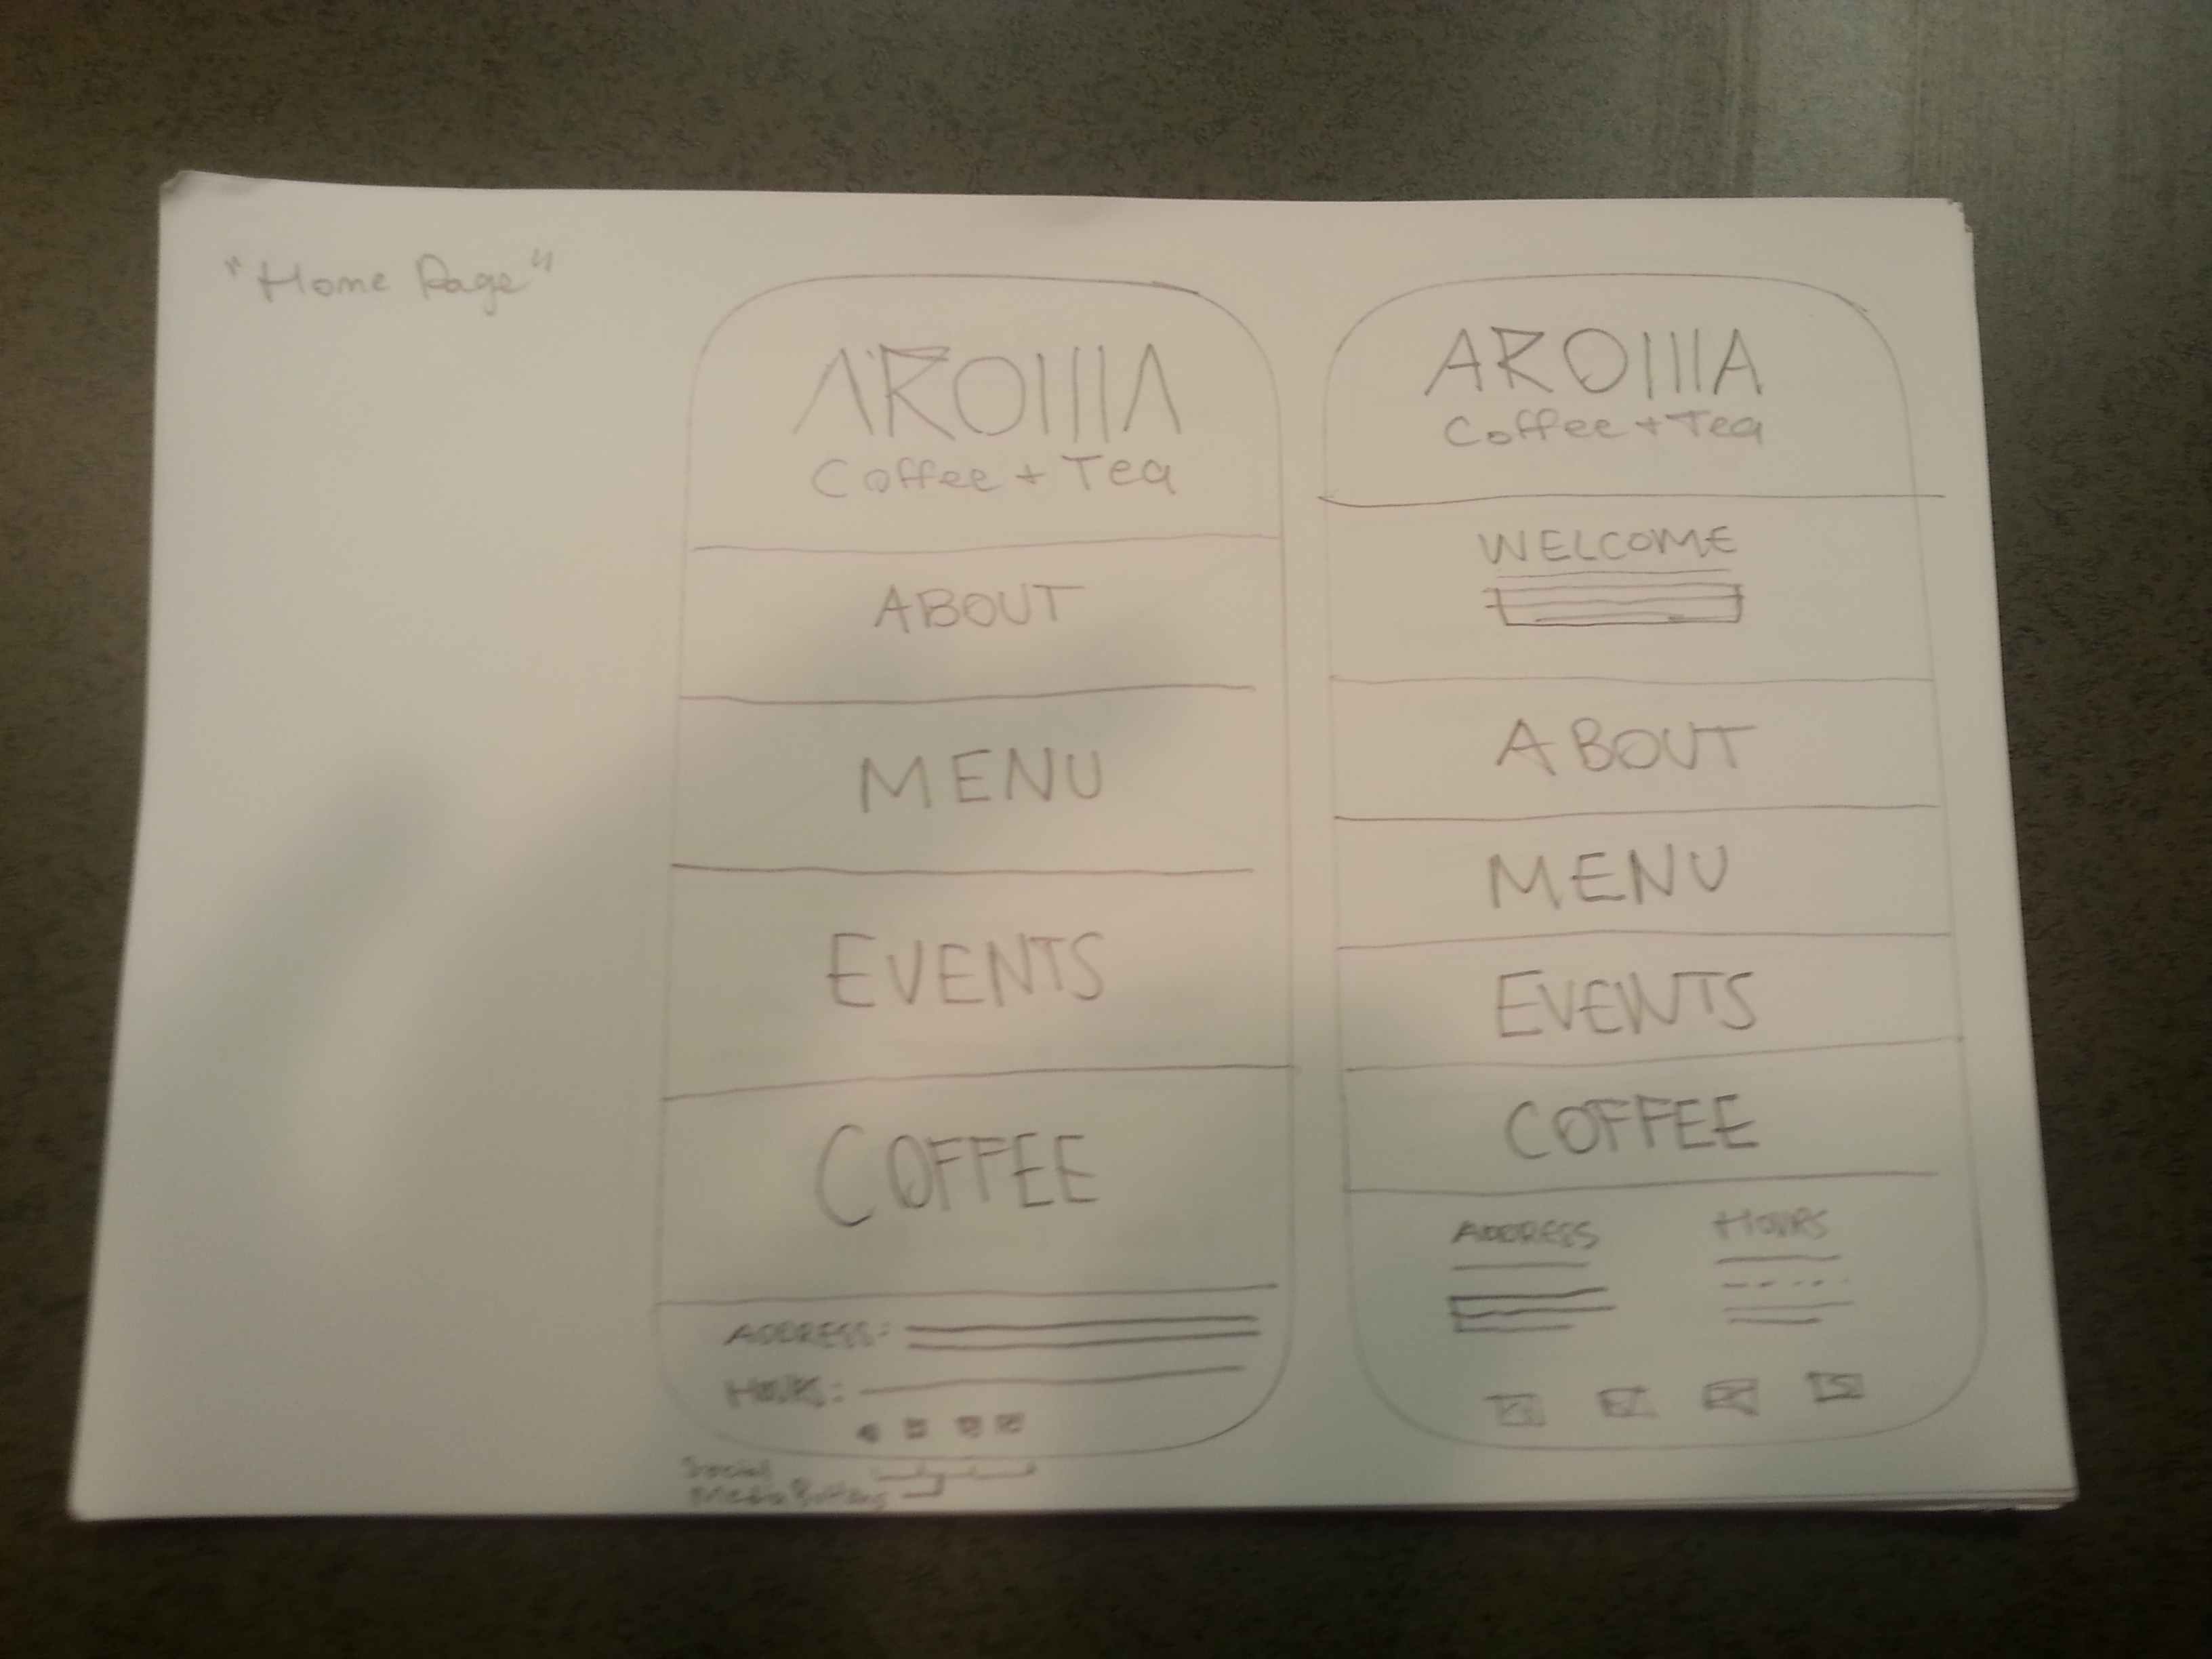 "Home Page"
AROMA
Coffee + Tea
ABOUT
MENU
EVENTS
COFFEE
ADDRESS:
HOURS:
Social
Media Buttons
AROMA
Coffee + Tea
WELCOME
ABOUT
MENU
EVENTS
COFFEE
ADDRESS
HOURS